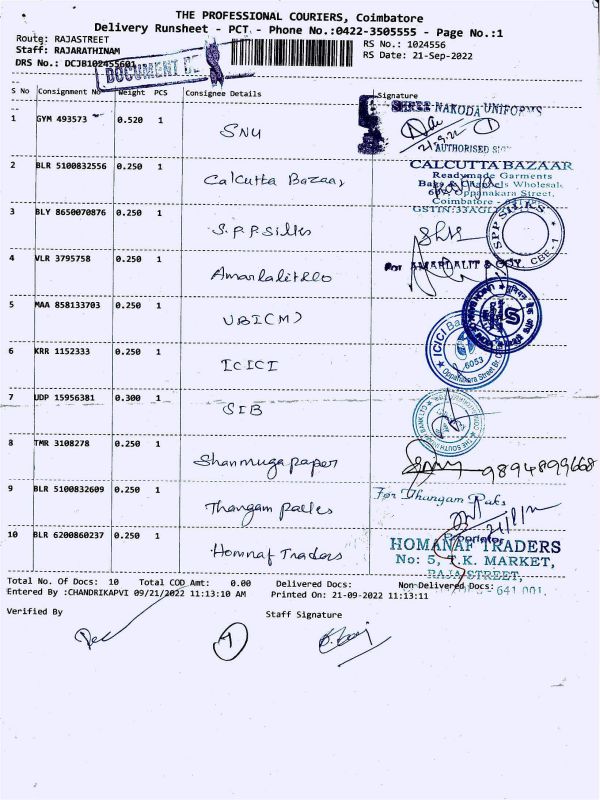 THE PROFESSIONAL COURIERS, Coimbatore
Delivery Runsheet - PCT - Phone No.:0422-3505555 - Page No.:1
Route: RAJASTREET
RS No.: 1024556
Staff: RAJARATHINAM
RS Date: 21-Sep-2022
DRS No.: DCJB102455601
DOCUMENT
S No Consignment No Weight PCS Consignee Details Signature
1 GYM 493573 0.520 1 SNU
SHREE NAKODA UNIFORMS
21.9.22 1
AUTHORISED
2 BLR 5100832556 0.250 1 Calcutta Bazaar
CALCUTTA BAZAAR
Readymade Garments
Wholesale
Oppanakara Street,
Coimbatore
GSTIN:33AGL
3 BLY 8650070876 0.250 1 S.P.P Silks
SPP SILKS CBE-1
4 VLR 3795758 0.250 1 Amarlalit &co
For AMARLALIT & COY.
5 MAA 858133703 0.250 1 UBI(M)
6 KRR 1152333 0.250 1 ICICI
ICICI Bank
6053
Oppanakara Street Br.
7 UDP 15956381 0.300 1 SIB
THE SOUTH INDIAN BANK LTD
8 TMR 3108278 0.250 1 Shanmuga paper
9894899668
9 BLR 5100832609 0.250 1 Thangam packs
For Thangam Paks
Proprietor
10 BLR 6200860237 0.250 1 Homnaf Traders
HOMANAF TRADERS
No: 5, T.K. MARKET,
RAJA STREET,
- 641 001.
Total No. Of Docs: 10 Total COD Amt: 0.00 Delivered Docs: Non-Delivered Docs:
Entered By :CHANDRIKAPVI 09/21/2022 11:13:10 AM Printed On: 21-09-2022 11:13:11
Verified By Staff Signature